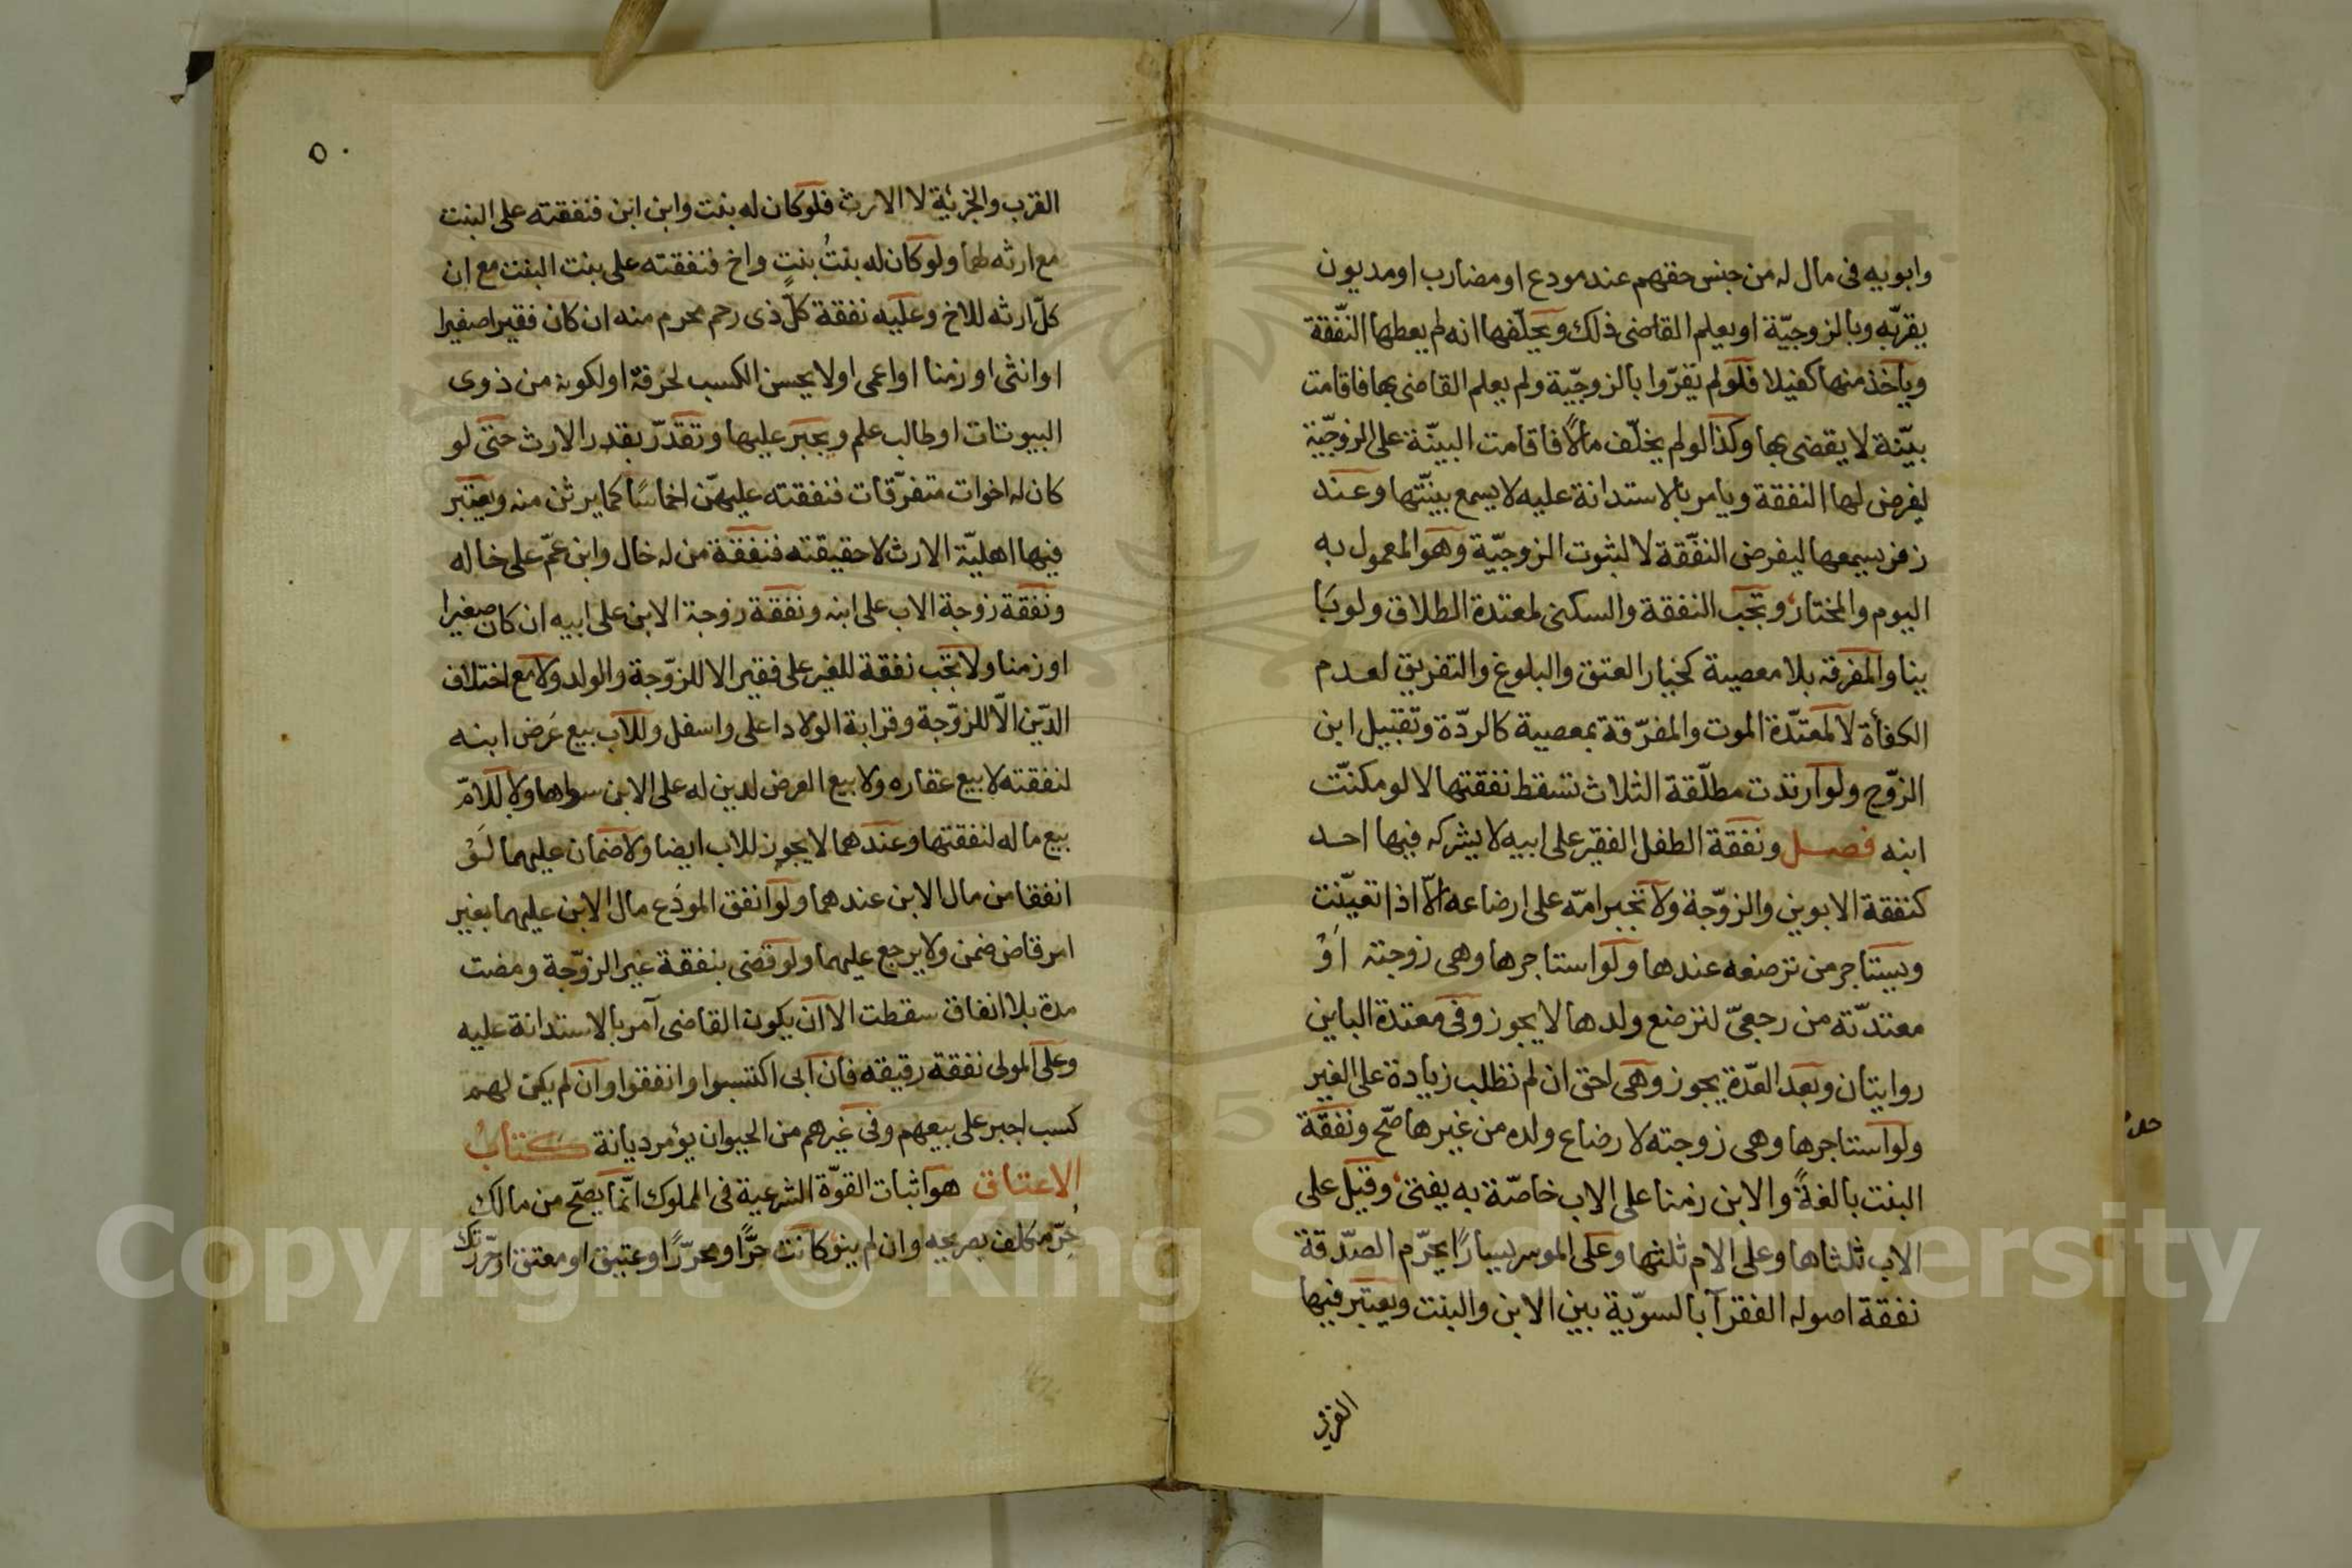 وابويه فى مال له من جنس حقهم عند مودع او مضارب او مديون
يقر به وبالزوجيّة او يعلم القاضى ذلك ويحلّفها انه لم يعطها النّفقة
وياخذ منها كفيلا فلو لم يقرّوا بالزوجيّة ولم يعلم القاضى بها فاقامت
بيّنة لا يقضى بها وكذا لو لم يخلّف مالًا فاقامت البيّنة على الزوجيّة
ليفرض لها النفقة ويامر بالاستدانة عليه لا يسمع بينّتها وعند
زفر يسمعها ليفرض النفّقة لا لثبوت الزوجيّة وهو المعمول به
اليوم والمختار وتجب النفقة والسكنى لمعتدة الطلاق ولو با
ينا والمفرقه بلا معصية كخيار العتق والبلوغ والتفريق لعدم
الكفأة لا لمعتدّة الموت والمفرّقة بمعصية كالردّة وتقبيل ابن
الزوّج ولو ارتدت مطلّقة الثلاث تسقط نفقتها لا لو مكنّت
ابنه فصل ونفقة الطفل الفقير على ابيه لا يشركه فيها احد
كنفقة الابوين والزوّجة ولا تجبر امّه على ارضاعه الّا اذا تعيّنت
ويستاجر من ترضعه عندها ولو استاجرها وهى زوجته اَوْ
معتدّته من رجعىّ لترضع ولدها لا يجوز وفى معتدة الباين
روايتان وبعد العدّة يجوز وهى احق ان لم تطلب زيادة على الغير
ولو استاجرها وهى زوجته لارضاع ولده من غيرها صحّ ونفقة
البنت بالغةً والابن زمنا على الاب خاصّة به يفتى وقيل على
الاب ثلثاها وعلى الام ثلثها وعلى الموسر يسارًا يحرّم الصدّقة
نفقة اصوله الفقرآ بالسوّية بين الابن والبنت ويعتبر فيها
القرب
٥٠
القرب والجزئية لا الارث فلو كان له بنت وابن ابن فنفقته على البنت
مع ارثه لهما ولو كان له بنتُ بنتٍ واخ فنفقته على بنت البنت مع ان
كلّ ارثه للاخ وعليه نفقة كلّ ذى رحم محرم منه ان كان فقيرا صغيرا
او انثى او زمنا او اعمى او لا يحسن الكسب لخرقه او لكونه من ذوى
البيوتات او طالب علم ويجبر عليها وتقدّر بقدر الارث حتى لو
كان له اخوات متفرّقات فنفقته عليهنّ اخماسًا كما يرثن منه ويعتبر
فيها اهليّة الارث لا حقيقته فنفقة من له خال وابن عمّ على خاله
ونفقة زوجة الاب على ابنه ونفقة زوجة الابن على ابيه ان كان صغيرا
او زمنا ولا تجب نفقة للغير على فقير الا للزوّجة والولد ولا مع اختلاف
الدّين الّا للزوّجة وقرابة الولاد اعلى واسفل وللاب بيع عَرض ابنه
لنفقته لا بيع عقاره ولا بيع العرض لدين له على الابن سواها ولا للامّ
بيع ماله لنفقتها وعندهما لا يجوز للاب ايضا ولا ضمان عليهما لَوْ
انفقا من مال الابن عندهما ولو انفق المودَع مال الابن عليهما بغير
امر قاض ضمن ولا يرجع عليهما ولو قضى بنفقة غير الزوّجة ومضت
مدة بلا انفاق سقطت الا ان يكون القاضى آمر بالاستدانة عليه
وعلى المولى نفقة رقيقه فان ابى اكتسبوا وانفقوا وان لم يكن لهم
كسب اجبر على بيعهم وفى غيرهم من الحيوان يؤمر ديانة كتابُ
الاعتاق هو اثبات القوّة الشرعية فى المملوك انّما يصّح من مالك
حُرّ مكلف بصريحه وان لم ينو كانت حرًّا او محررًا او عتيق او معتق او حرّرتك
Copyright © King Saud University